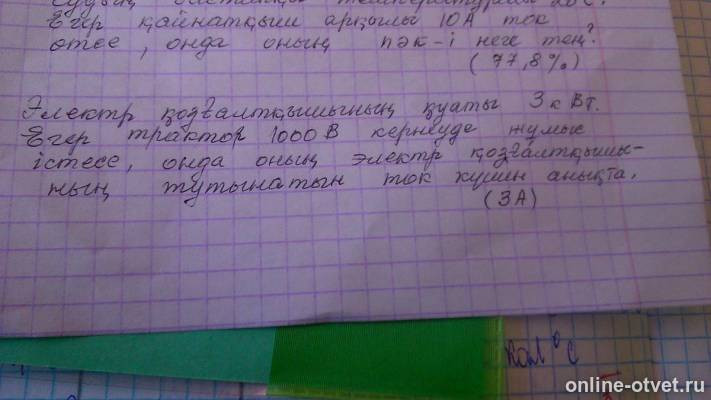 температурасы 20°C.
Егер қайнатқыш арқылы 10А ток
өтсе, онда оның пәк-і неге тең?
(77,8%)
Электр қозғалтқышының қуаты 3кВт.
Егер трактор 1000В кернеуде жұмыс
істесе, онда оның электр қозғалтқышы-
ның тұтынатын ток күшін анықта.
(3А)
online-otvet.ru